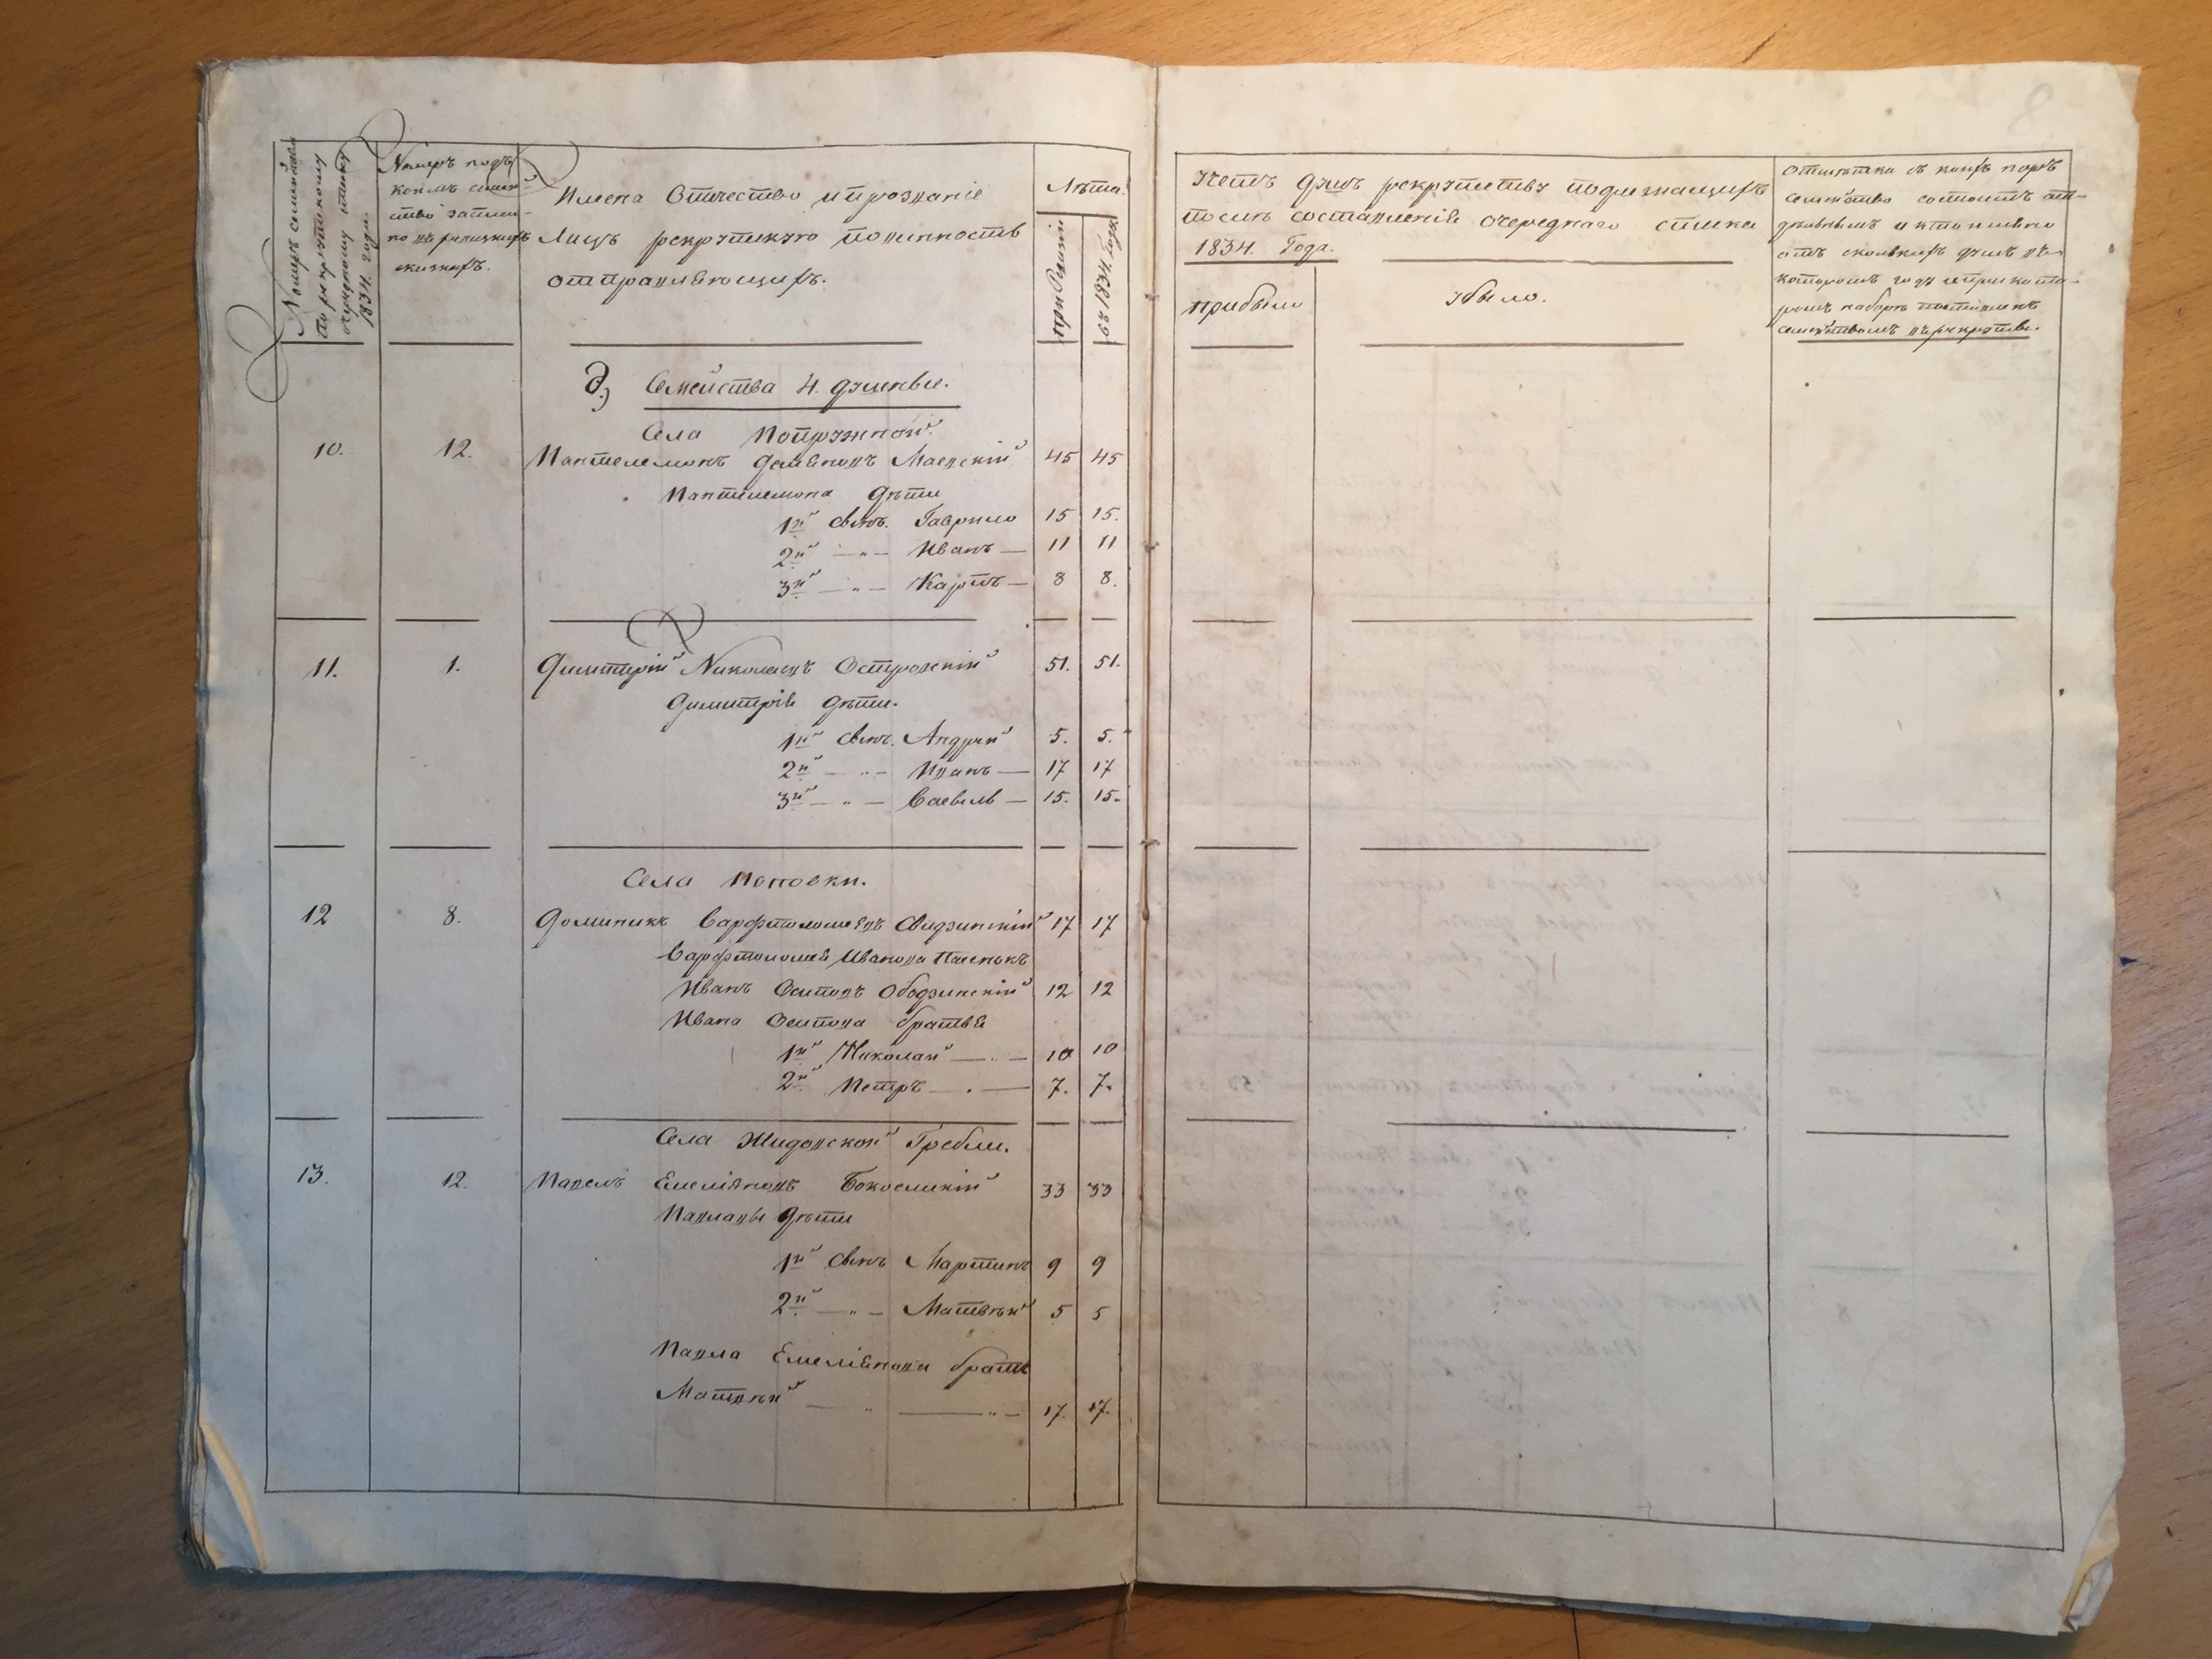 Номеръ семейства
по рекрутскому
очередному списку
1834. года.
Номеръ подъ
коимъ семей-
ство записа-
но въ ревизскихъ
сказкахъ.
Имена Отчество и прозваніе
Лицъ рекрутскую повинность
отправляющихъ.
Лѣта.
при Ревизіи
въ 1834. Году
Учетъ душъ рекрутству подлежащихъ
послѣ составленія очереднаго списка
1834. Года.
прибыло
убыло.
Отмѣтка съ коихъ поръ
семейство состоитъ от-
дѣльнымъ и кто имѣно
отъ сколькихъ душъ въ
которомъ году и при кото-
ромъ наборѣ поставленъ
семействомъ въ рекруты.
8
д.) Семейства 4. душевые.
Села Попружной.
10. 12. Пантелемонъ Деміяновъ Маевскій 45 45
Пантелемона дѣти
1й сынъ. Гаврило 15 15.
2й — „ — Иванъ — 11 11
3й — „ — Карпъ — 8 8.
11. 1. Димитрій Николаевъ Островскій 51. 51.
Димитрія дѣти.
1й сынъ. Андрей 5. 5.
2й — „ — Иванъ — 17 17
3й — „ — Савель — 15. 15.
Села Поповки.
12 8. Доминикъ Варфтоломѣевъ Свидзинскій 17 17
Варфтоломея Иванова Пасынокъ
Иванъ Осиповъ Ободзинскій 12 12
Ивана Осипова братья
1й Николай — „ — 10 10
2й Петръ — . — 7. 7.
Села Жидовской Гребли.
13. 12. Павелъ Емеліяновъ 33 33
дѣти
1й сынъ Мартинъ 9 9
2й — „ — Матвѣй 5 5
Павла Емеліянова братъ
Матвѣй — „ — „ — 17. 17.